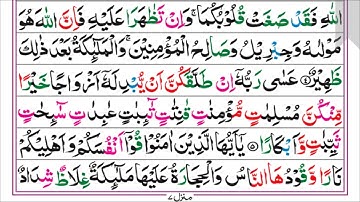 اللّٰهِ فَقَدْ صَغَتْ قُلُوْبُكُمَا ۚ وَاِنْ تَظٰهَرَا عَلَيْهِ فَاِنَّ اللّٰهَ هُوَ
مَوْلٰىهُ وَجِبْرِيْلُ وَصَالِحُ الْمُؤْمِنِيْنَ ۚ وَالْمَلٰٓئِكَةُ بَعْدَ ذٰلِكَ
ظَهِيْرٌ ﴿۴﴾ عَسٰى رَبُّهٗٓ اِنْ طَلَّقَكُنَّ اَنْ يُّبْدِلَهٗٓ اَزْوَاجًا خَيْرًا
مِّنْكُنَّ مُسْلِمٰتٍ مُّؤْمِنٰتٍ قٰنِتٰتٍ تٰٓئِبٰتٍ عٰبِدٰتٍ سٰٓئِحٰتٍ
ثَيِّبٰتٍ وَّاَبْكَارًا ﴿۵﴾ يٰٓاَيُّهَا الَّذِيْنَ اٰمَنُوْا قُوْٓا اَنْفُسَكُمْ وَاَهْلِيْكُمْ
نَارًا وَّقُوْدُهَا النَّاسُ وَالْحِجَارَةُ عَلَيْهَا مَلٰٓئِكَةٌ غِلَاظٌ شِدَادٌ
منزل ۷